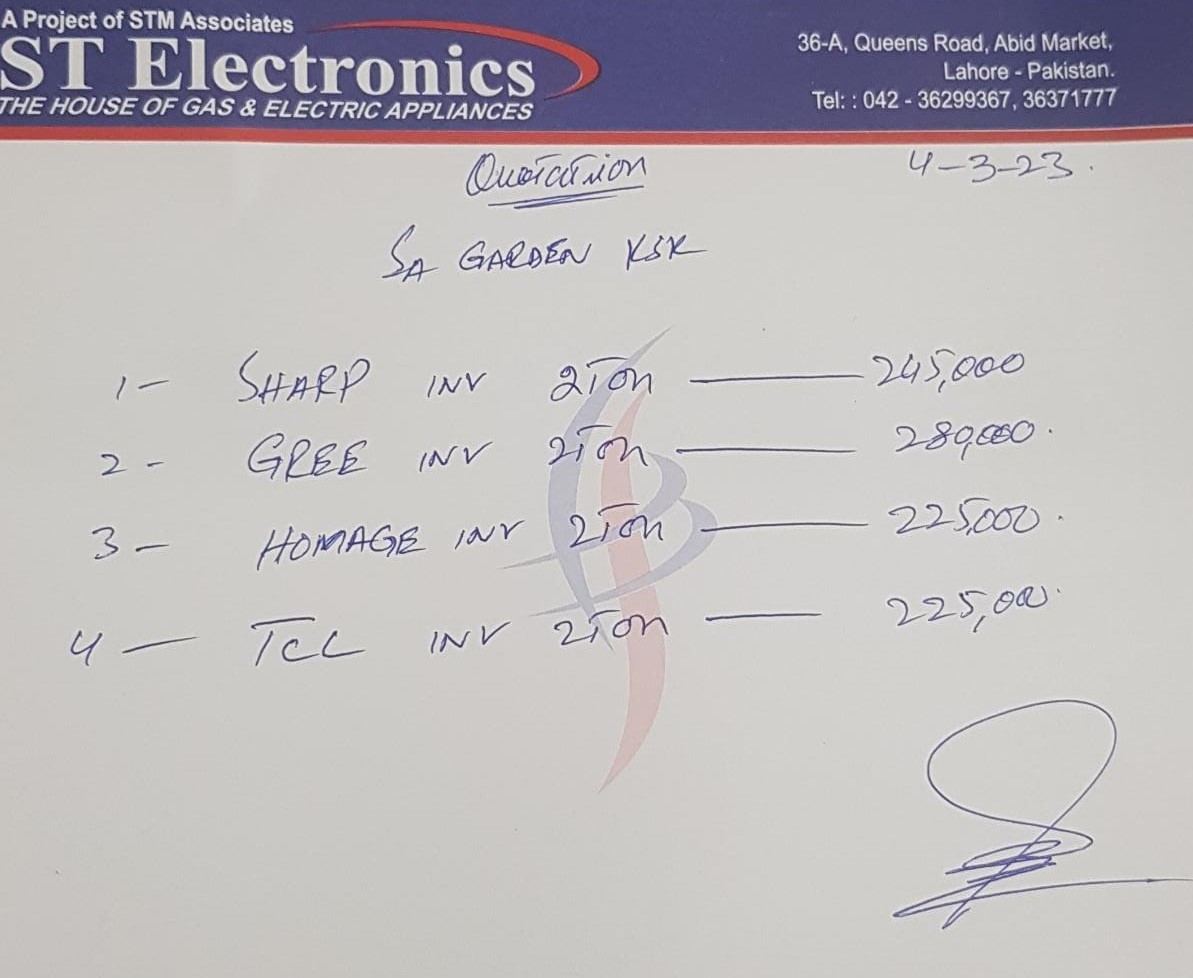 A Project of STM Associates
ST Electronics
THE HOUSE OF GAS & ELECTRIC APPLIANCES
36-A, Queens Road, Abid Market,
Lahore - Pakistan.
Tel: : 042 - 36299367, 36371777
Quotation
4-3-23.
SA GARDEN KSK
1- SHARP INV 2Ton — 245,000
2- GREE INV 2Ton — 280,000.
3- HOMAGE INV 2Ton — 225,000.
4- TCL INV 2Ton — 225,000.